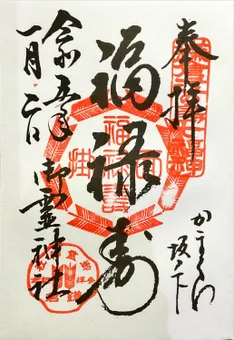 奉拝
かまくら
坂ノ下
福禄寿
御霊神社
令和五年
一月二日